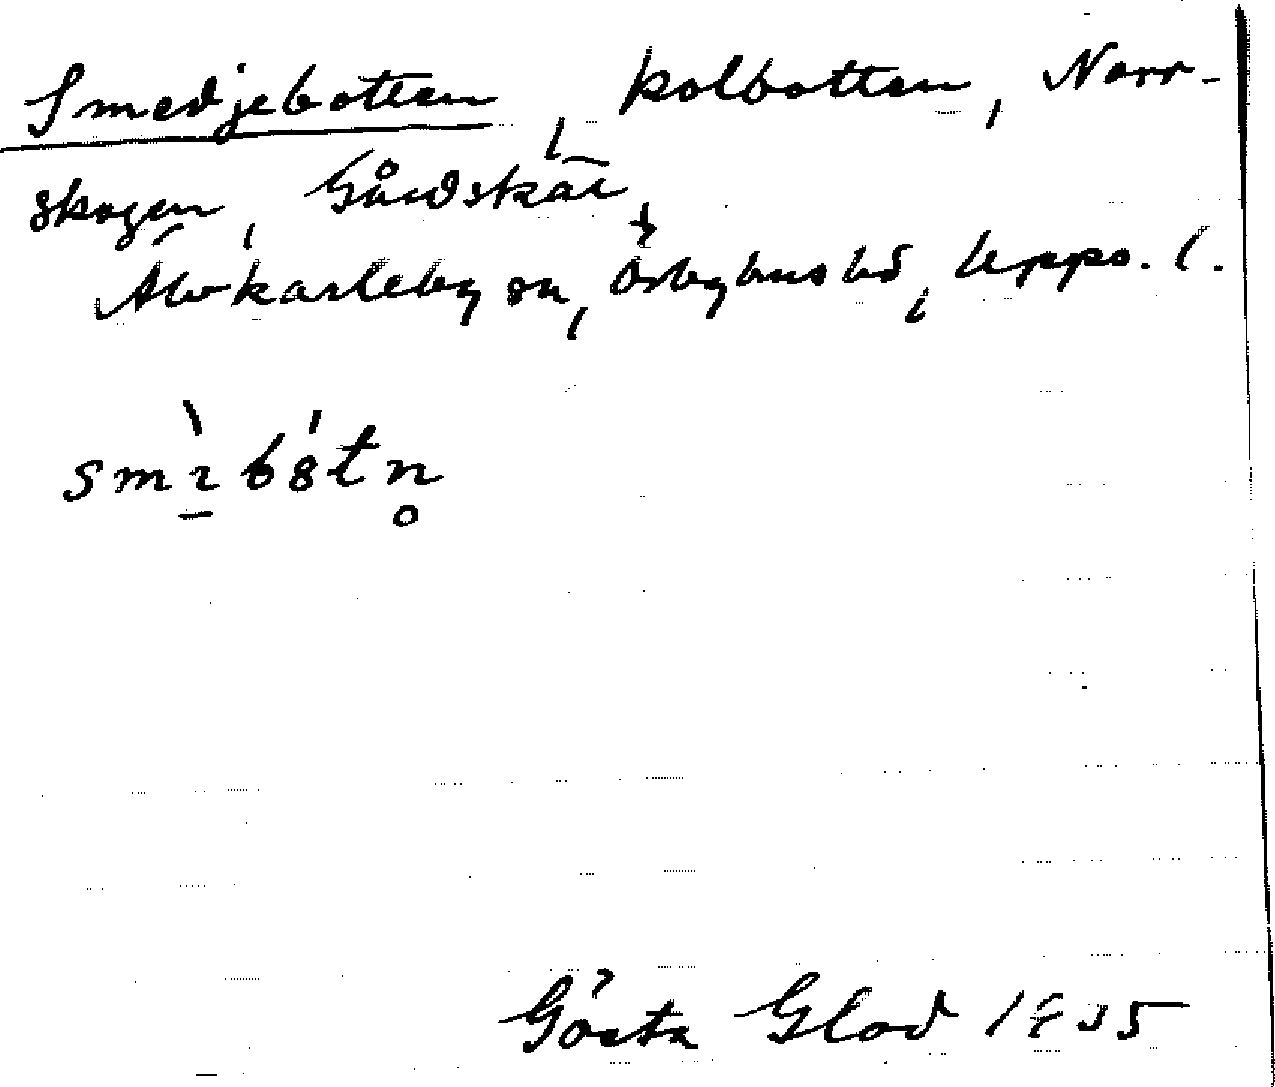 Smedjebotten, kolbotten, Norr-
skogen, Gårdskär,
Älvkarleby sn, Örbyhus hd, Upps. l.
smìbȣ́tn̥
Gösta Glad 1935